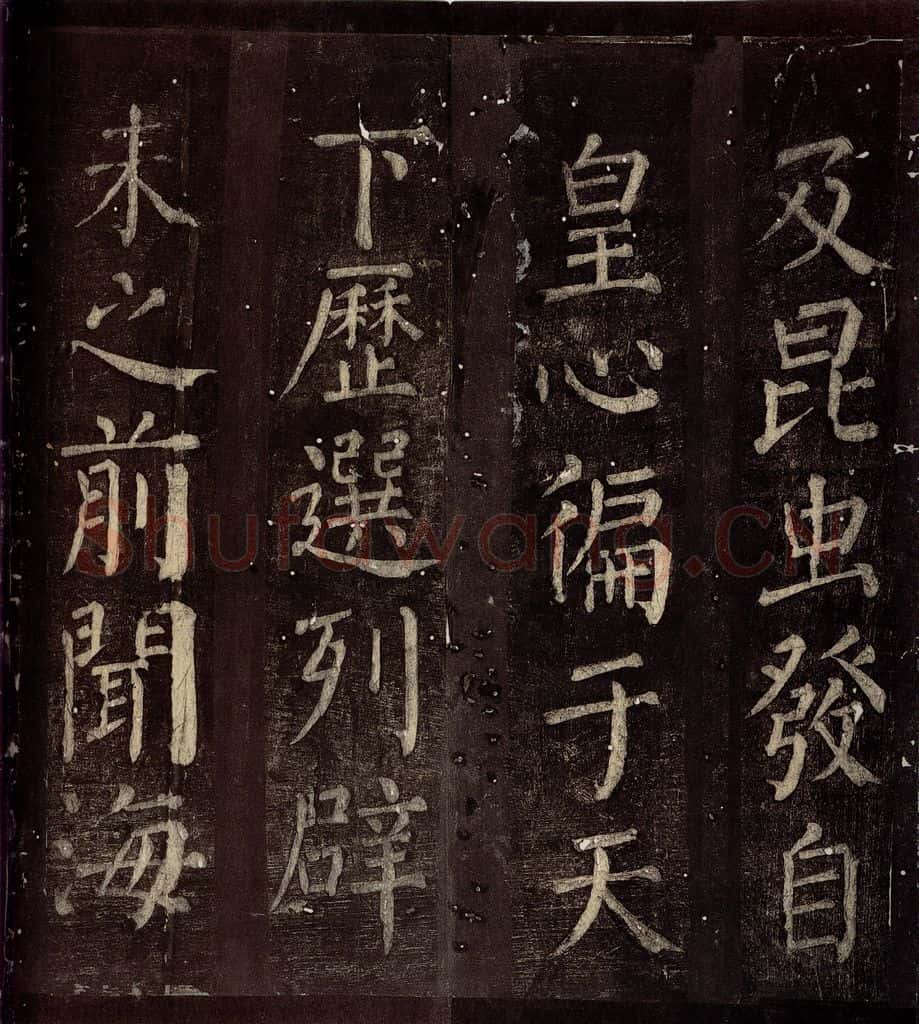 及昆虫發自
皇心徧于天
下歷選列辟
未之前聞海
shufawang.cn